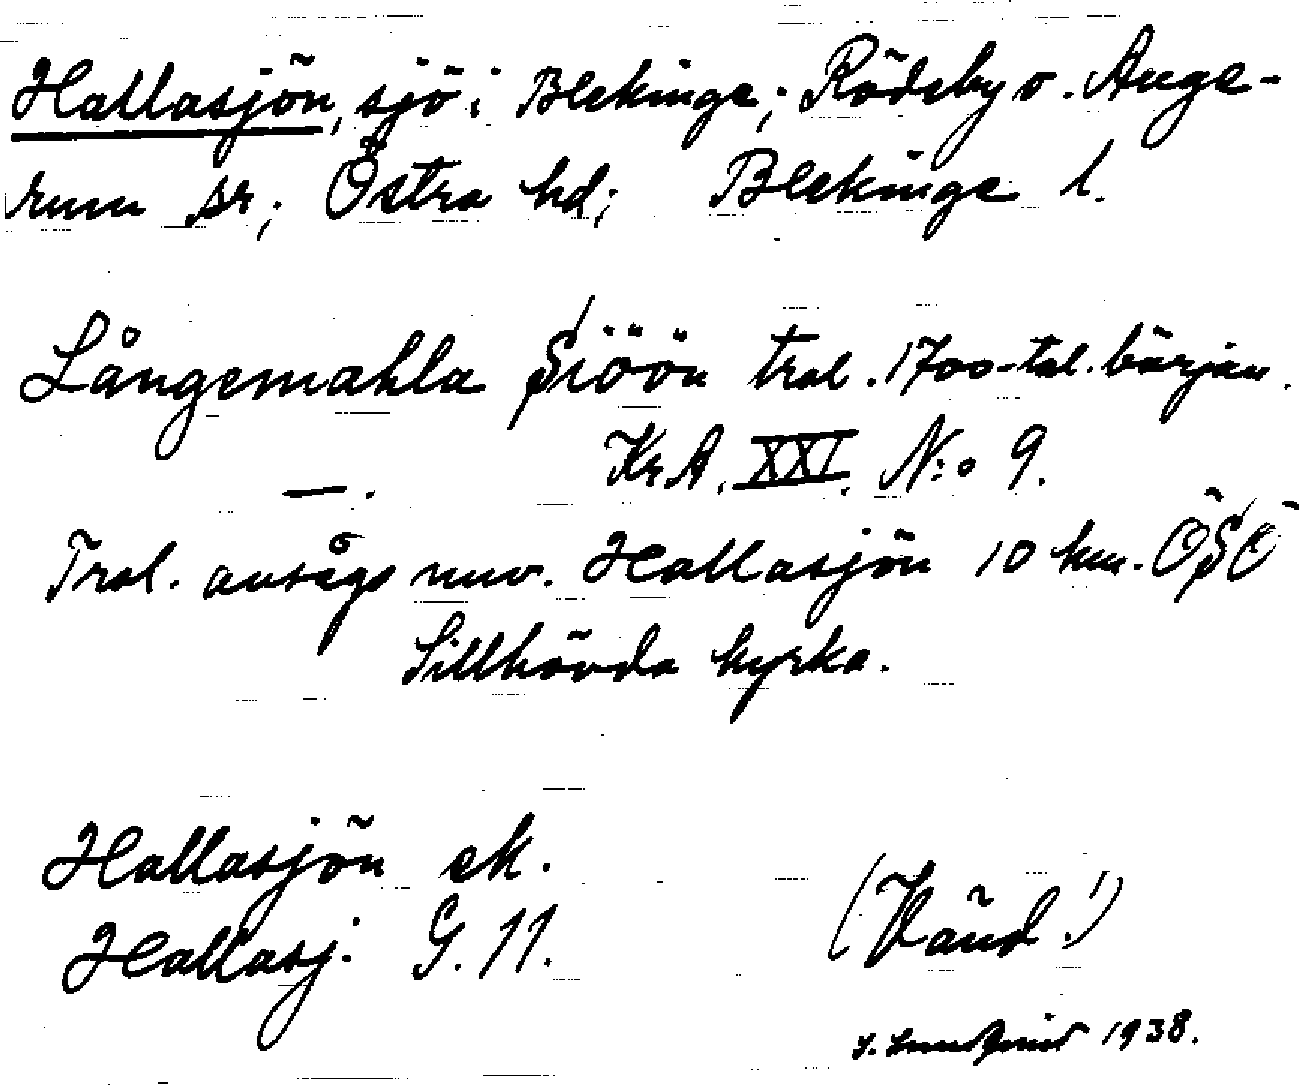 Hallasjön, sjö i Blekinge; Rödeby o. Auge-
rum sr; Östra hd; Blekinge l.
Långemahla Siöön trol. 1700-tal. början.
Kr.A. XXI. N:o 9.
—.
Trol. avsågs nuv. Hallasjön 10 km. ÖSÖ
Sillhövda kyrka.
Hallasjön ek.
Hallasj. G. 11.
(Vänd!)
Lundquist 1938.